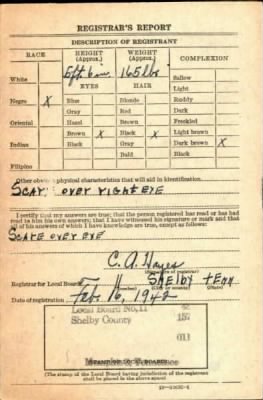 REGISTRAR'S REPORT
DESCRIPTION OF REGISTRANT
RACE HEIGHT (Approx.) WEIGHT (Approx.) COMPLEXION
5ft. 6in. 165 lbs
White EYES HAIR Sallow
Light
Negro X Blue Blonde Ruddy
Gray Red Dark
Oriental Hazel Brown Freckled
Brown X Black X Light brown
Indian Black Gray Dark brown X
Bald Black
Filipino
Other obvious physical characteristics that will aid in identification
SCAR OVER RIGHT EYE
I certify that my answers are true; that the person registered has read or has had
read to him his own answers; that I have witnessed his signature or mark and that
all of his answers of which I have knowledge are true, except as follows:
SCARE OVER EYE
C. A. Hayes
(Signature of registrar)
Registrar for Local Board 11 SHELBY TENN
(Number) (State)
Date of registration Feb. 16, 1942
Local Board No. 11
Shelby County 157
011
(The stamp of the Local Board having jurisdiction of the registrant
shall be placed in the above space)